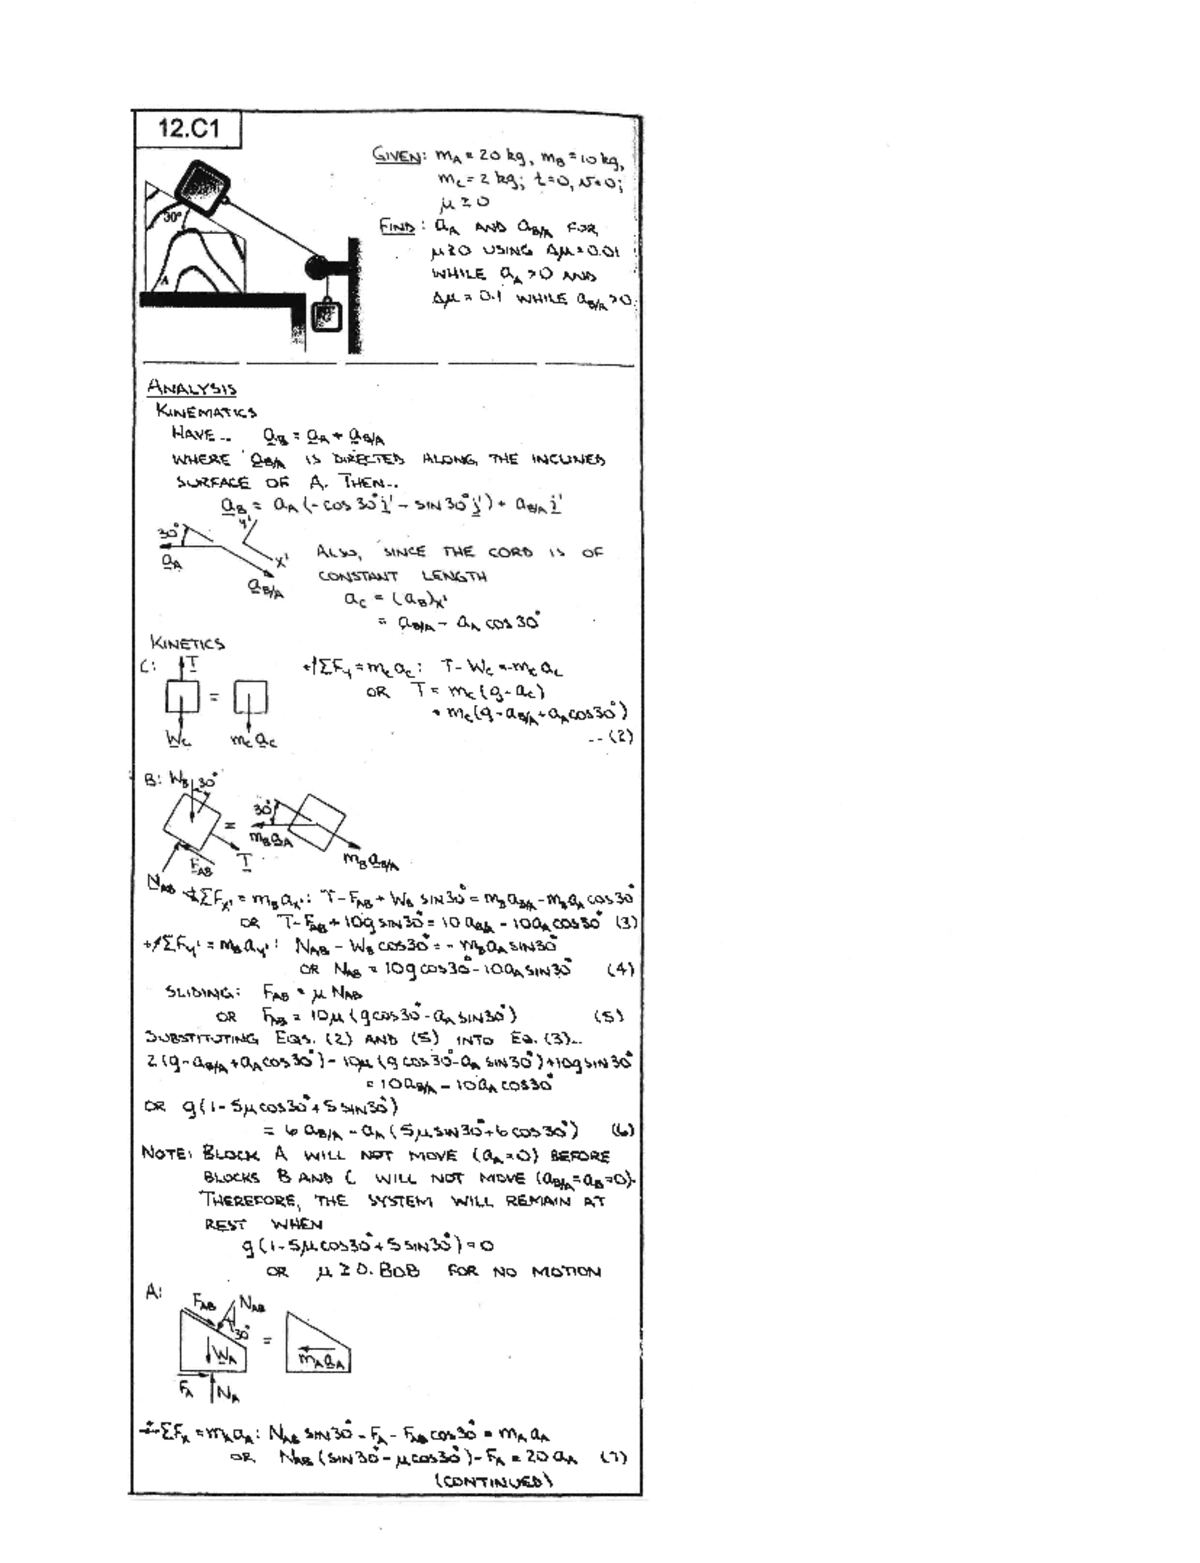 12.C1
GIVEN: mA = 20 kg, mB = 10 kg,
mC = 2 kg; t=0, v=0;
μ ≥ 0
FIND: aA AND aB/A FOR
μ≥0 USING Δμ=0.01
WHILE aA >0 AND
Δμ = 0.1 WHILE aB/A >0.
30°
A
ANALYSIS
KINEMATICS
HAVE.. aB = aA + aB/A
WHERE aB/A IS DIRECTED ALONG THE INCLINED
SURFACE OF A. THEN..
aB = aA (-cos 30° i' - sin 30° j') + aB/A i'
30° y'
aA x'
aB/A
ALSO, SINCE THE CORD IS OF
CONSTANT LENGTH
aC = (aB)x'
= aB/A - aA cos 30°
KINETICS
C: T
=
WC mC aC
+↑ΣFy = mC aC: T - WC = -mC aC
OR T = mC (g - aC)
= mC (g - aB/A + aA cos 30°)
-- (2)
B: WB 30°
= 30°
mB aA
mB aB/A
FAB T
NAB
+↘ΣFx' = mB ax': T - FAB + WB sin 30° = mB aB/A - mB aA cos 30°
OR T - FAB + 10g sin 30° = 10 aB/A - 10 aA cos 30° (3)
+↗ΣFy' = mB ay': NAB - WB cos 30° = - mB aA sin 30°
OR NAB = 10g cos 30° - 10 aA sin 30° (4)
SLIDING: FAB = μ NAB
OR FAB = 10μ (g cos 30° - aA sin 30°) (5)
SUBSTITUTING EQS. (2) AND (5) INTO EQ. (3)..
2 (g - aB/A + aA cos 30°) - 10μ (g cos 30° - aA sin 30°) + 10g sin 30°
= 10 aB/A - 10 aA cos 30°
OR g (1 - 5μ cos 30° + 5 sin 30°)
= 6 aB/A - aA (5μ sin 30° + 6 cos 30°) (6)
NOTE: BLOCK A WILL NOT MOVE (aA = 0) BEFORE
BLOCKS B AND C WILL NOT MOVE (aB/A = aB = 0).
THEREFORE, THE SYSTEM WILL REMAIN AT
REST WHEN
g (1 - 5μ cos 30° + 5 sin 30°) = 0
OR μ ≥ 0.808 FOR NO MOTION
A: FAB NAB
30°
=
WA mA aA
FA NA
+←ΣFx = mA aA: NAB sin 30° - FA - FAB cos 30° = mA aA
OR NAB (sin 30° - μ cos 30°) - FA = 20 aA (7)
(CONTINUED)